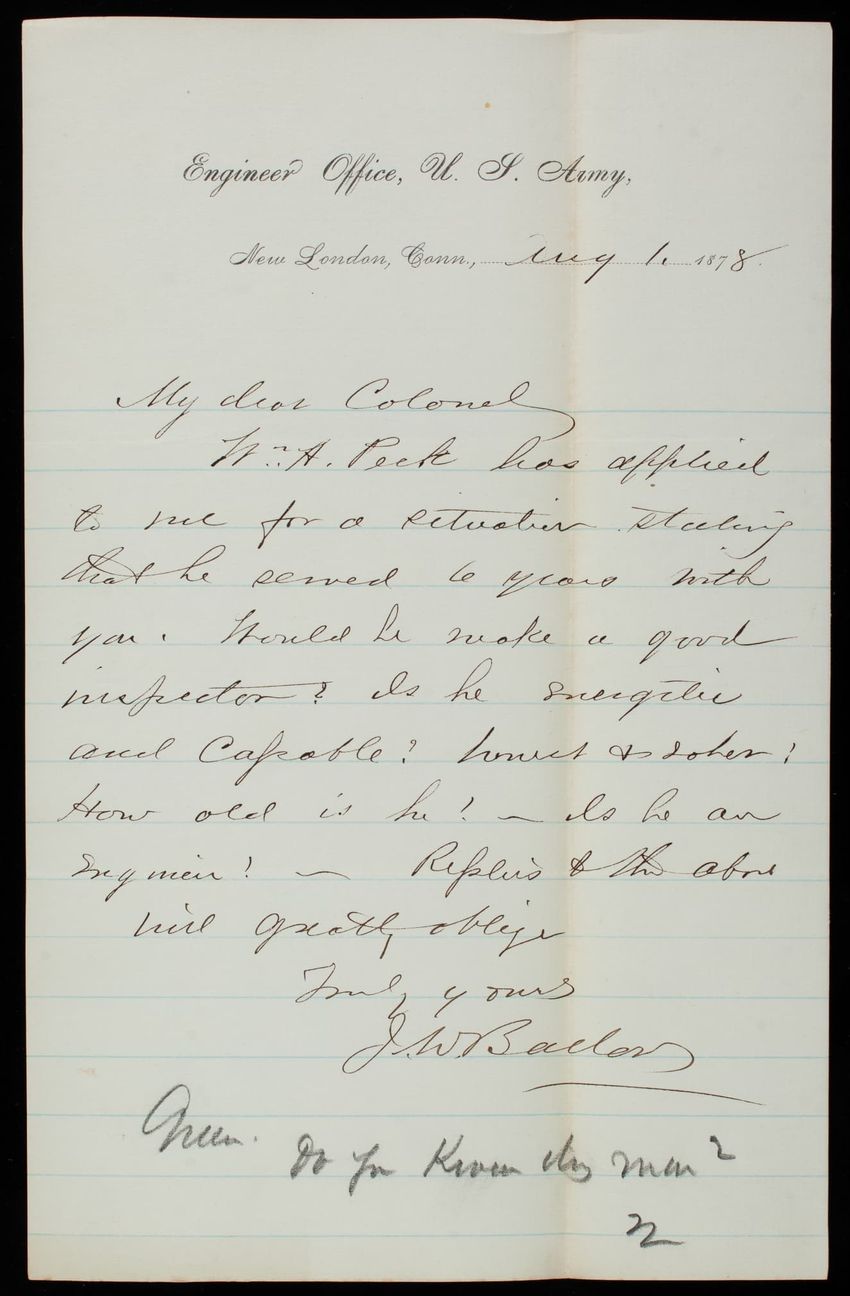 Engineer Office, U. S. Army,
New London, Conn., Aug 1. 1878.
My dear Colonel
Wm. A. Peck has applied
to me for a situation stating
that he served 6 years with
you. Would he make a good
inspector? Is he energetic
and capable? honest & sober?
How old is he? — Is he an
Engineer? — Replies to the above
will greatly oblige
Truly yours
J. W. Barlow
Green. Do you know this man?